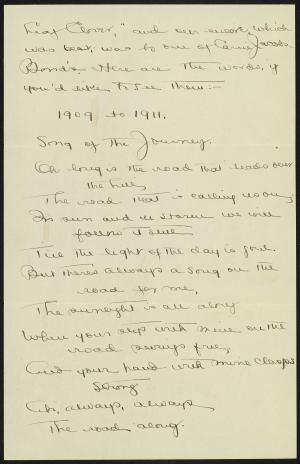 Leaf Clover," and our encore, which
was best, was to one of Carrie Jacobs
Bond's. Here are the words, if
you'd like to see them:-
1909 to 1911.
Song of the Journey.
Oh long is the road that leads over
the hills,
The road that is calling us on;
In sun and in storm we will
follow it still
Till the light of the day is gone.
But there's always a song on the
road for me,
The is all along
When your step with mine on the
road swings free,
And your hand with mine clasps
strong
Oh, always, always
The road along.